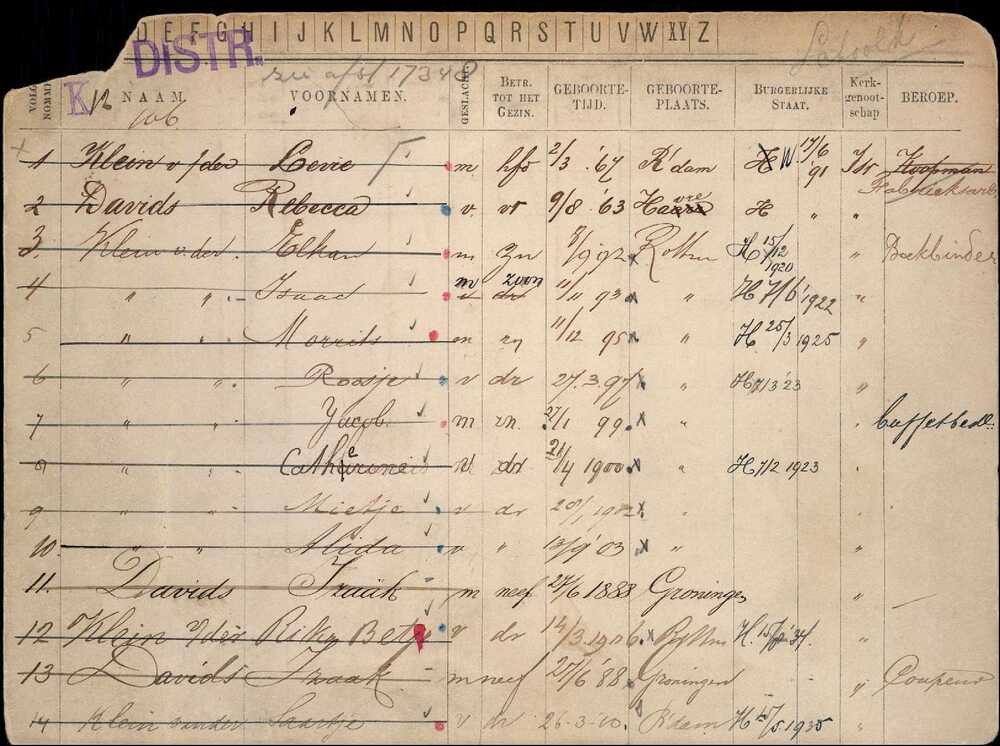 D E F G H I J K L M N O P Q R S T U V W XY Z
DISTR.
K 12
106
NAAM.
VOORNAMEN.
GESLACHT
BETR. TOT HET GEZIN.
GEBOORTE-TIJD.
GEBOORTE-PLAATS.
BURGERLIJKE STAAT.
Kerk-genoot-schap
BEROEP.
1 Klein v/der Levie m hfd 2/3 '67 R'dam H W 17/6 '91 Isr Koopman
2 Davids Rebecca v. vr 9/8 '63 H " "
3. Klein v.der. Elkan m zn 92 Rottm H 15/12 1920 " Boekbinder
4 " " Isaac m zoon 11/11 93 " H 7/6 1922 "
5 " " Morrits m zn 11/12 95 " H 25/3 1925 "
6 " " Roosje v dr 27.3.97 " H 7/3 '23 "
7 " " Jacob m zn. 27/1 99. " " buffetbed.
8 " " v dr 21/4 1900 " H 7/2 1923 "
9 " " Mietje v dr "
10. " " Alida v " 13/9 '03 " "
11. Davids Izaäk m neef 27/6 1888 Groningen " —
12 Klein v/der Rika Betje v dr 14/3 1906 H. "
13 Davids Izaak m neef 27/6 '88 Groningen " " Coupeur
14 Klein v ander Saartje v dr 26-3-00. R'dam H 15/5 1935 "